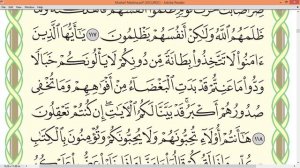 Mushaf-Madina.pdf (SECURED) - Adobe Reader
صِرٌّ أَصَابَتْ حَرْثَ قَوْمٍ ظَلَمُوٓا۟
ظَلَمَهُمُ ٱللَّهُ وَلَٰكِنْ أَنفُسَهُمْ يَظْلِمُونَ ١١٧ يَٰٓأَيُّهَا ٱلَّذِينَ
ءَامَنُوا۟ لَا تَتَّخِذُوا۟ بِطَانَةً مِّن دُونِكُمْ لَا يَأْلُونَكُمْ خَبَالًا
وَدُّوا۟ مَا عَنِتُّمْ قَدْ بَدَتِ ٱلْبَغْضَآءُ مِنْ أَفْوَٰهِهِمْ وَمَا تُخْفِى
صُدُورُهُمْ أَكْبَرُ ۚ قَدْ بَيَّنَّا لَكُمُ ٱلْـَٔايَٰتِ ۖ إِن كُنتُمْ تَعْقِلُونَ
١١٨ هَٰٓأَنتُمْ أُو۟لَآءِ تُحِبُّونَهُمْ وَلَا يُحِبُّونَكُمْ وَتُؤْمِنُونَ بِٱلْكِتَٰبِ